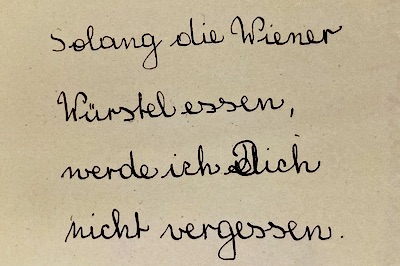 Solang die Wiener
Würstel essen,
werde ich Dich
nicht vergessen.